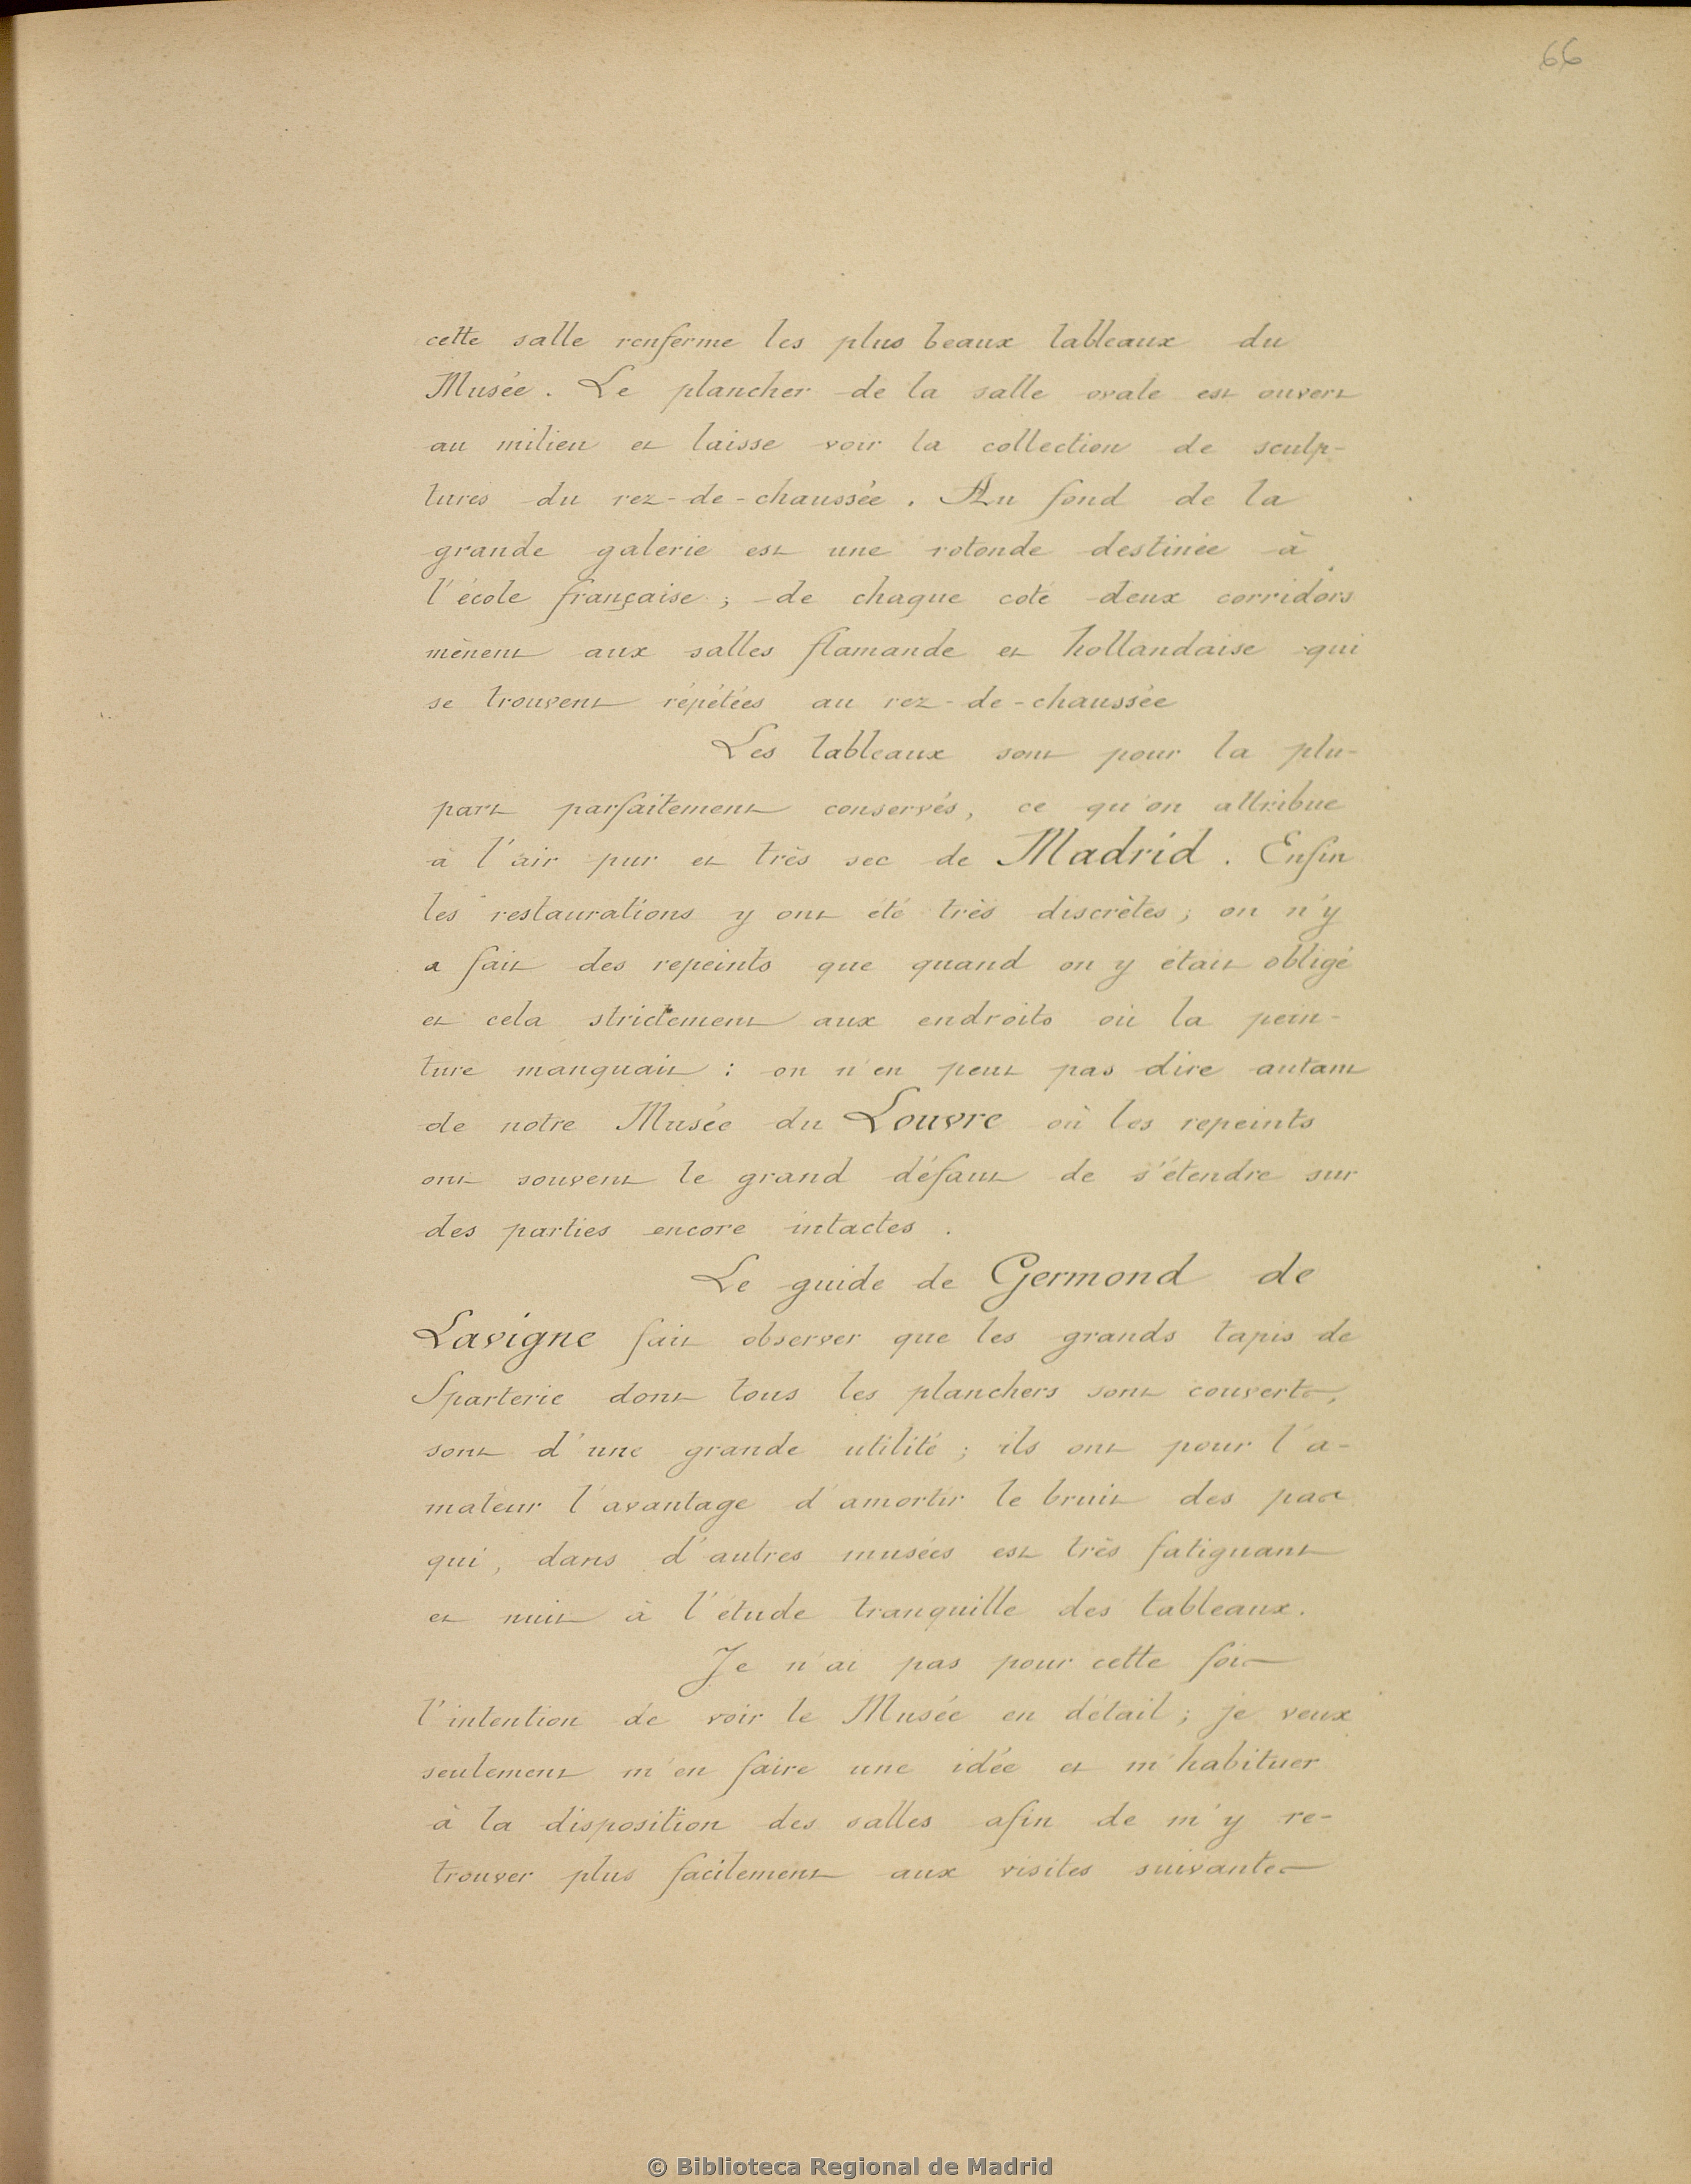 66
cette salle renferme les plus beaux tableaux du
Musée. Le plancher de la salle ovale est ouvert
au milieu et laisse voir la collection de sculp-
tures du rez-de-chaussée. Au fond de la
grande galerie est une rotonde destinée à
l'école française; de chaque coté deux corridors
mènent aux salles flamande et hollandaise qui
se trouvent répétées au rez-de-chaussée
Les tableaux sont pour la plu-
part parfaitement conservés, ce qu'on attribue
à l'air pur et très sec de Madrid. Enfin
les restaurations y ont été très discrètes; on n'y
a fait des repeints que quand on y était obligé
et cela strictement aux endroits où la pein-
ture manquait : on n'en peut pas dire autant
de notre Musée du Louvre où les repeints
ont souvent le grand défaut de s'étendre sur
des parties encore intactes.
Le guide de Germond de
Lavigne fait observer que les grands tapis de
Sparterie dont tous les planchers sont couverts,
sont d'une grande utilité; ils ont pour l'a-
mateur l'avantage d'amortir le bruit des pas
qui, dans d'autres musées est très fatiguant
et nuit à l'étude tranquille des tableaux.
Je n'ai pas pour cette fois
l'intention de voir le Musée en détail; je veux
seulement m'en faire une idée et m'habituer
à la disposition des salles afin de m'y re-
trouver plus facilement aux visites suivantes
© Biblioteca Regional de Madrid